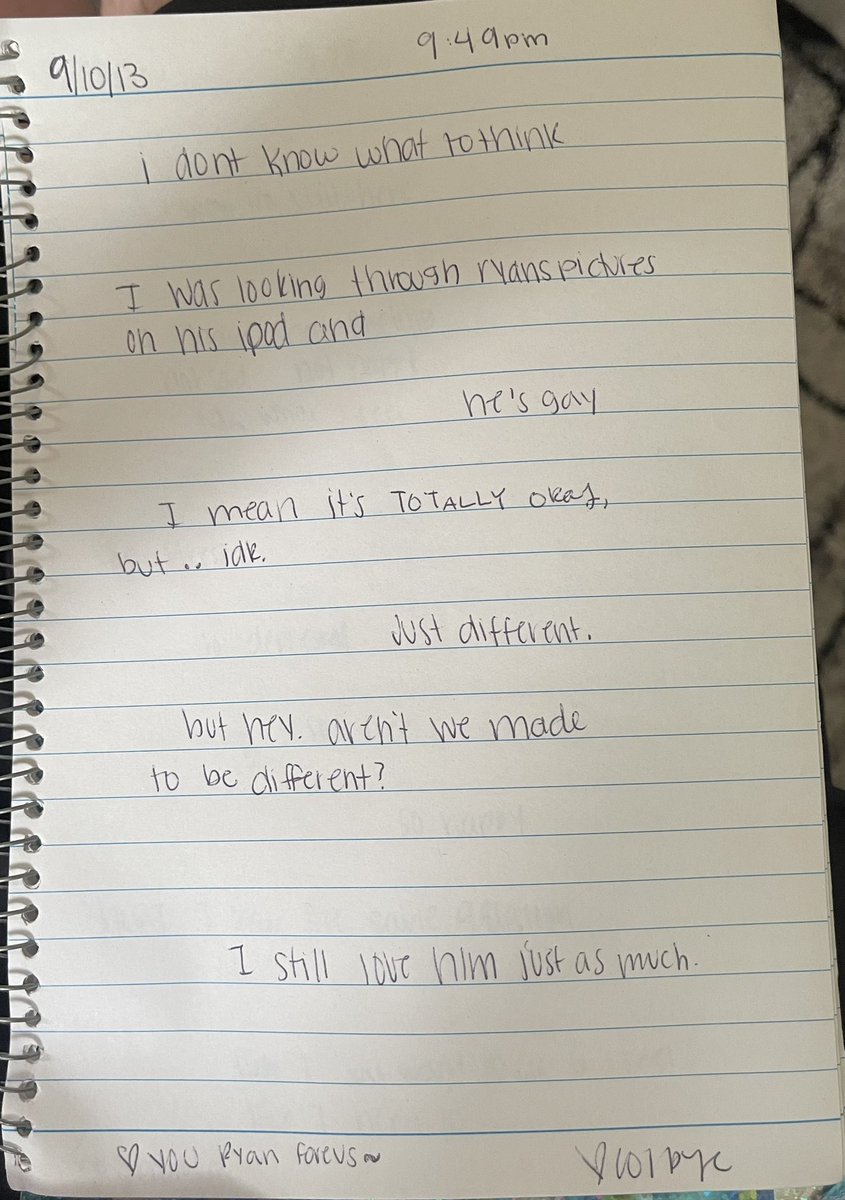 9/10/13 9:49pm
i dont know what to think
I was looking through ryans pictures
on his ipod and
he's gay
I mean it's TOTALLY okay,
but .. idk.
just different.
but hey. aren't we made
to be different?
I still love him just as much.
♡ YOU Ryan forevs~
♡ lol bye